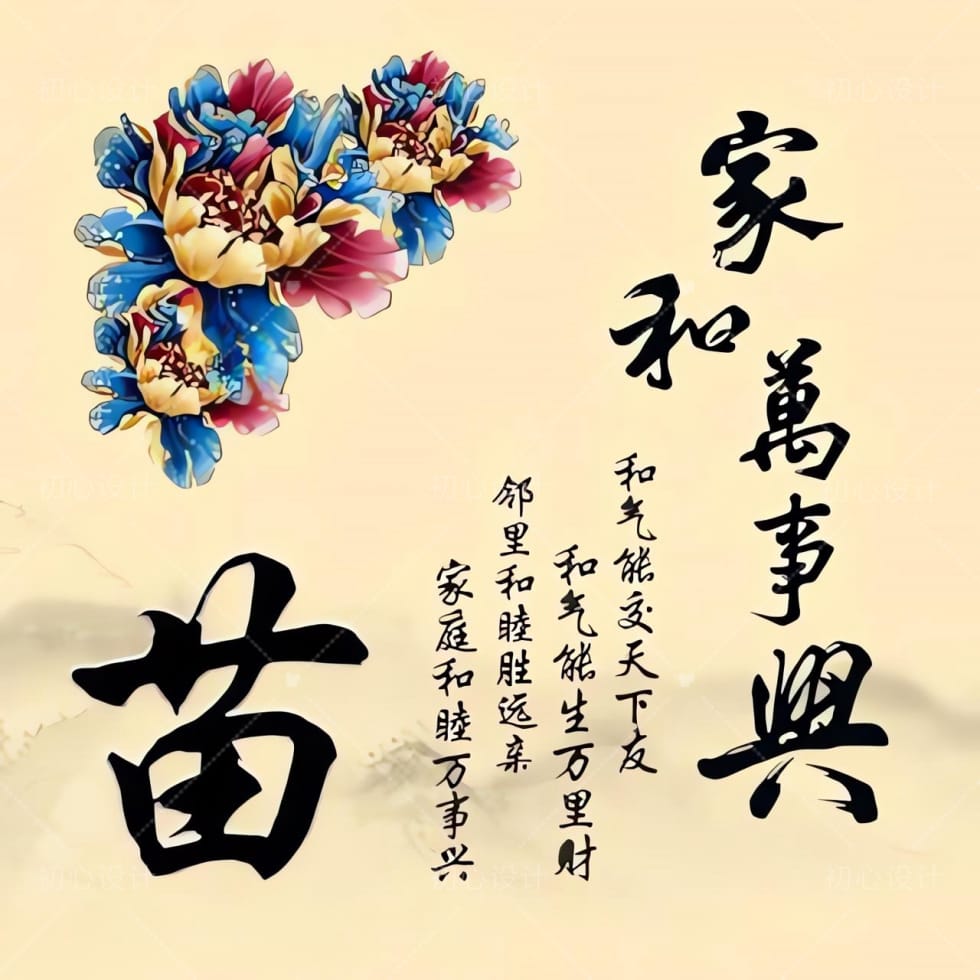 家和萬事興
和气能交天下友
和气能生万里财
邻里和睦胜远亲
家庭和睦万事兴
苗
初心设计